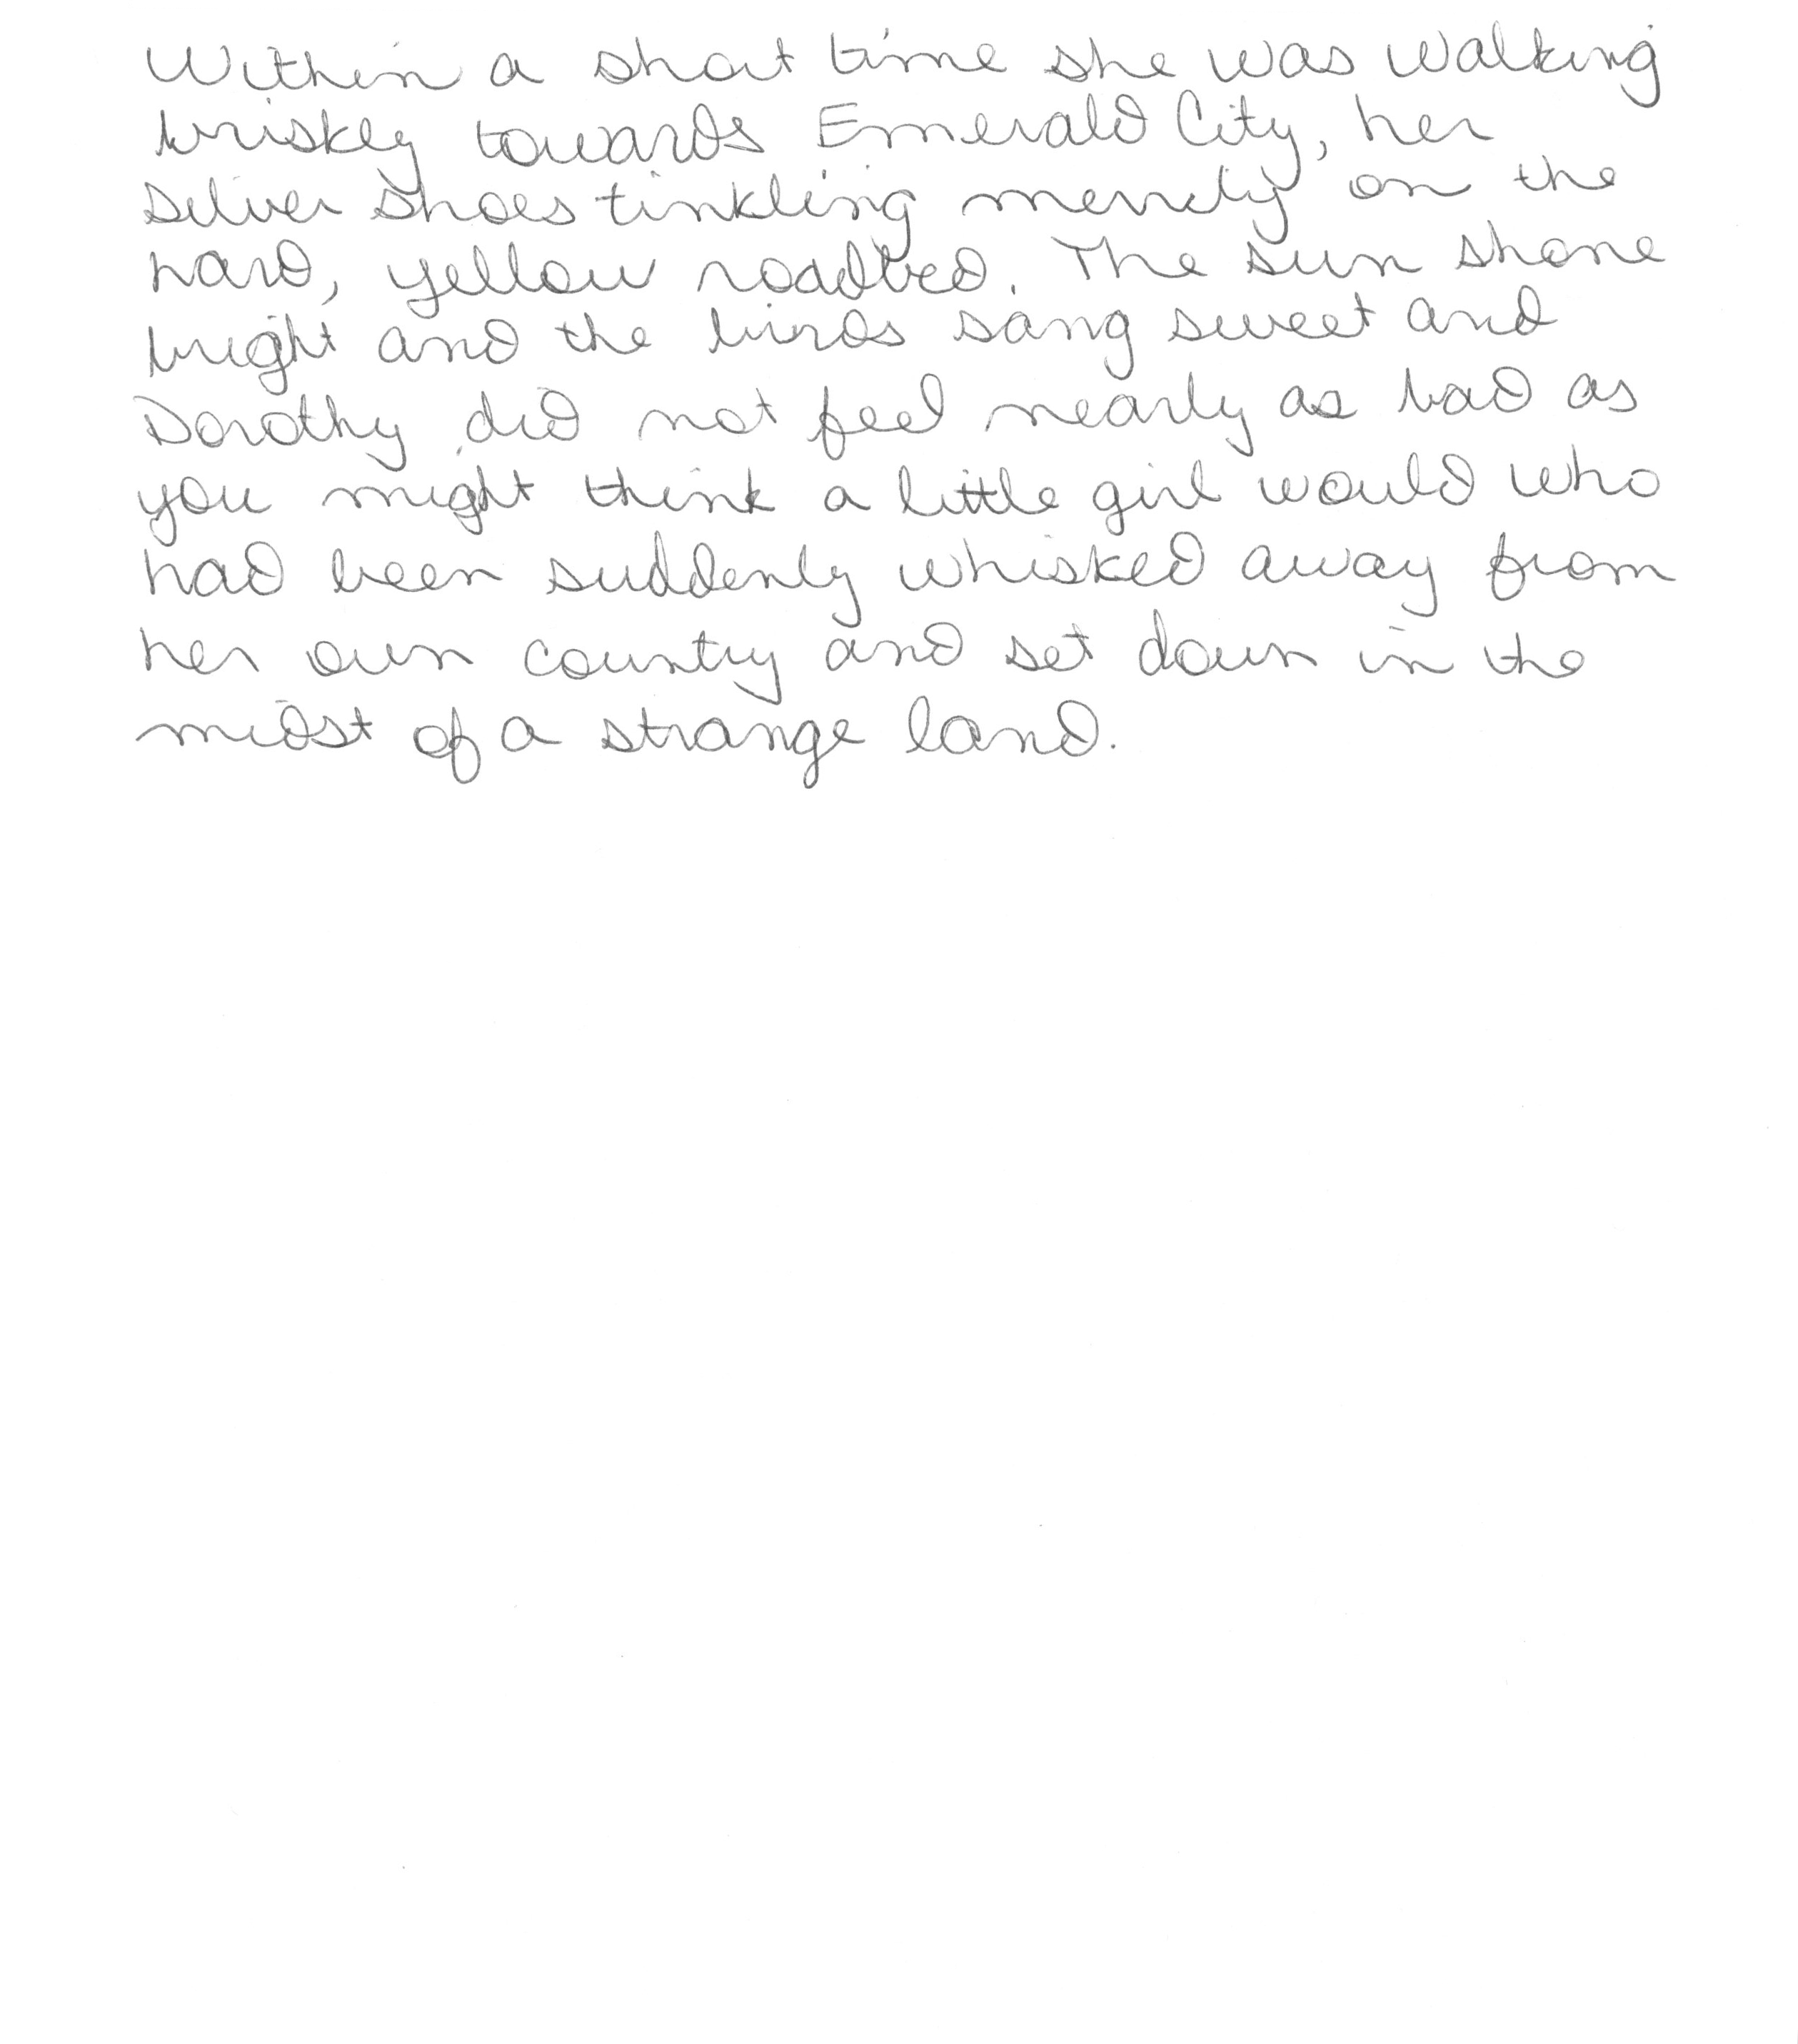 Within a short time she was walking
briskly towards Emerald City, her
Silver Shoes tinkling merrily on the
hard, yellow roadbed. The sun shone
bright and the birds sang sweet and
Dorothy did not feel nearly as bad as
you might think a little girl would who
had been suddenly whisked away from
her own country and set down in the
midst of a strange land.